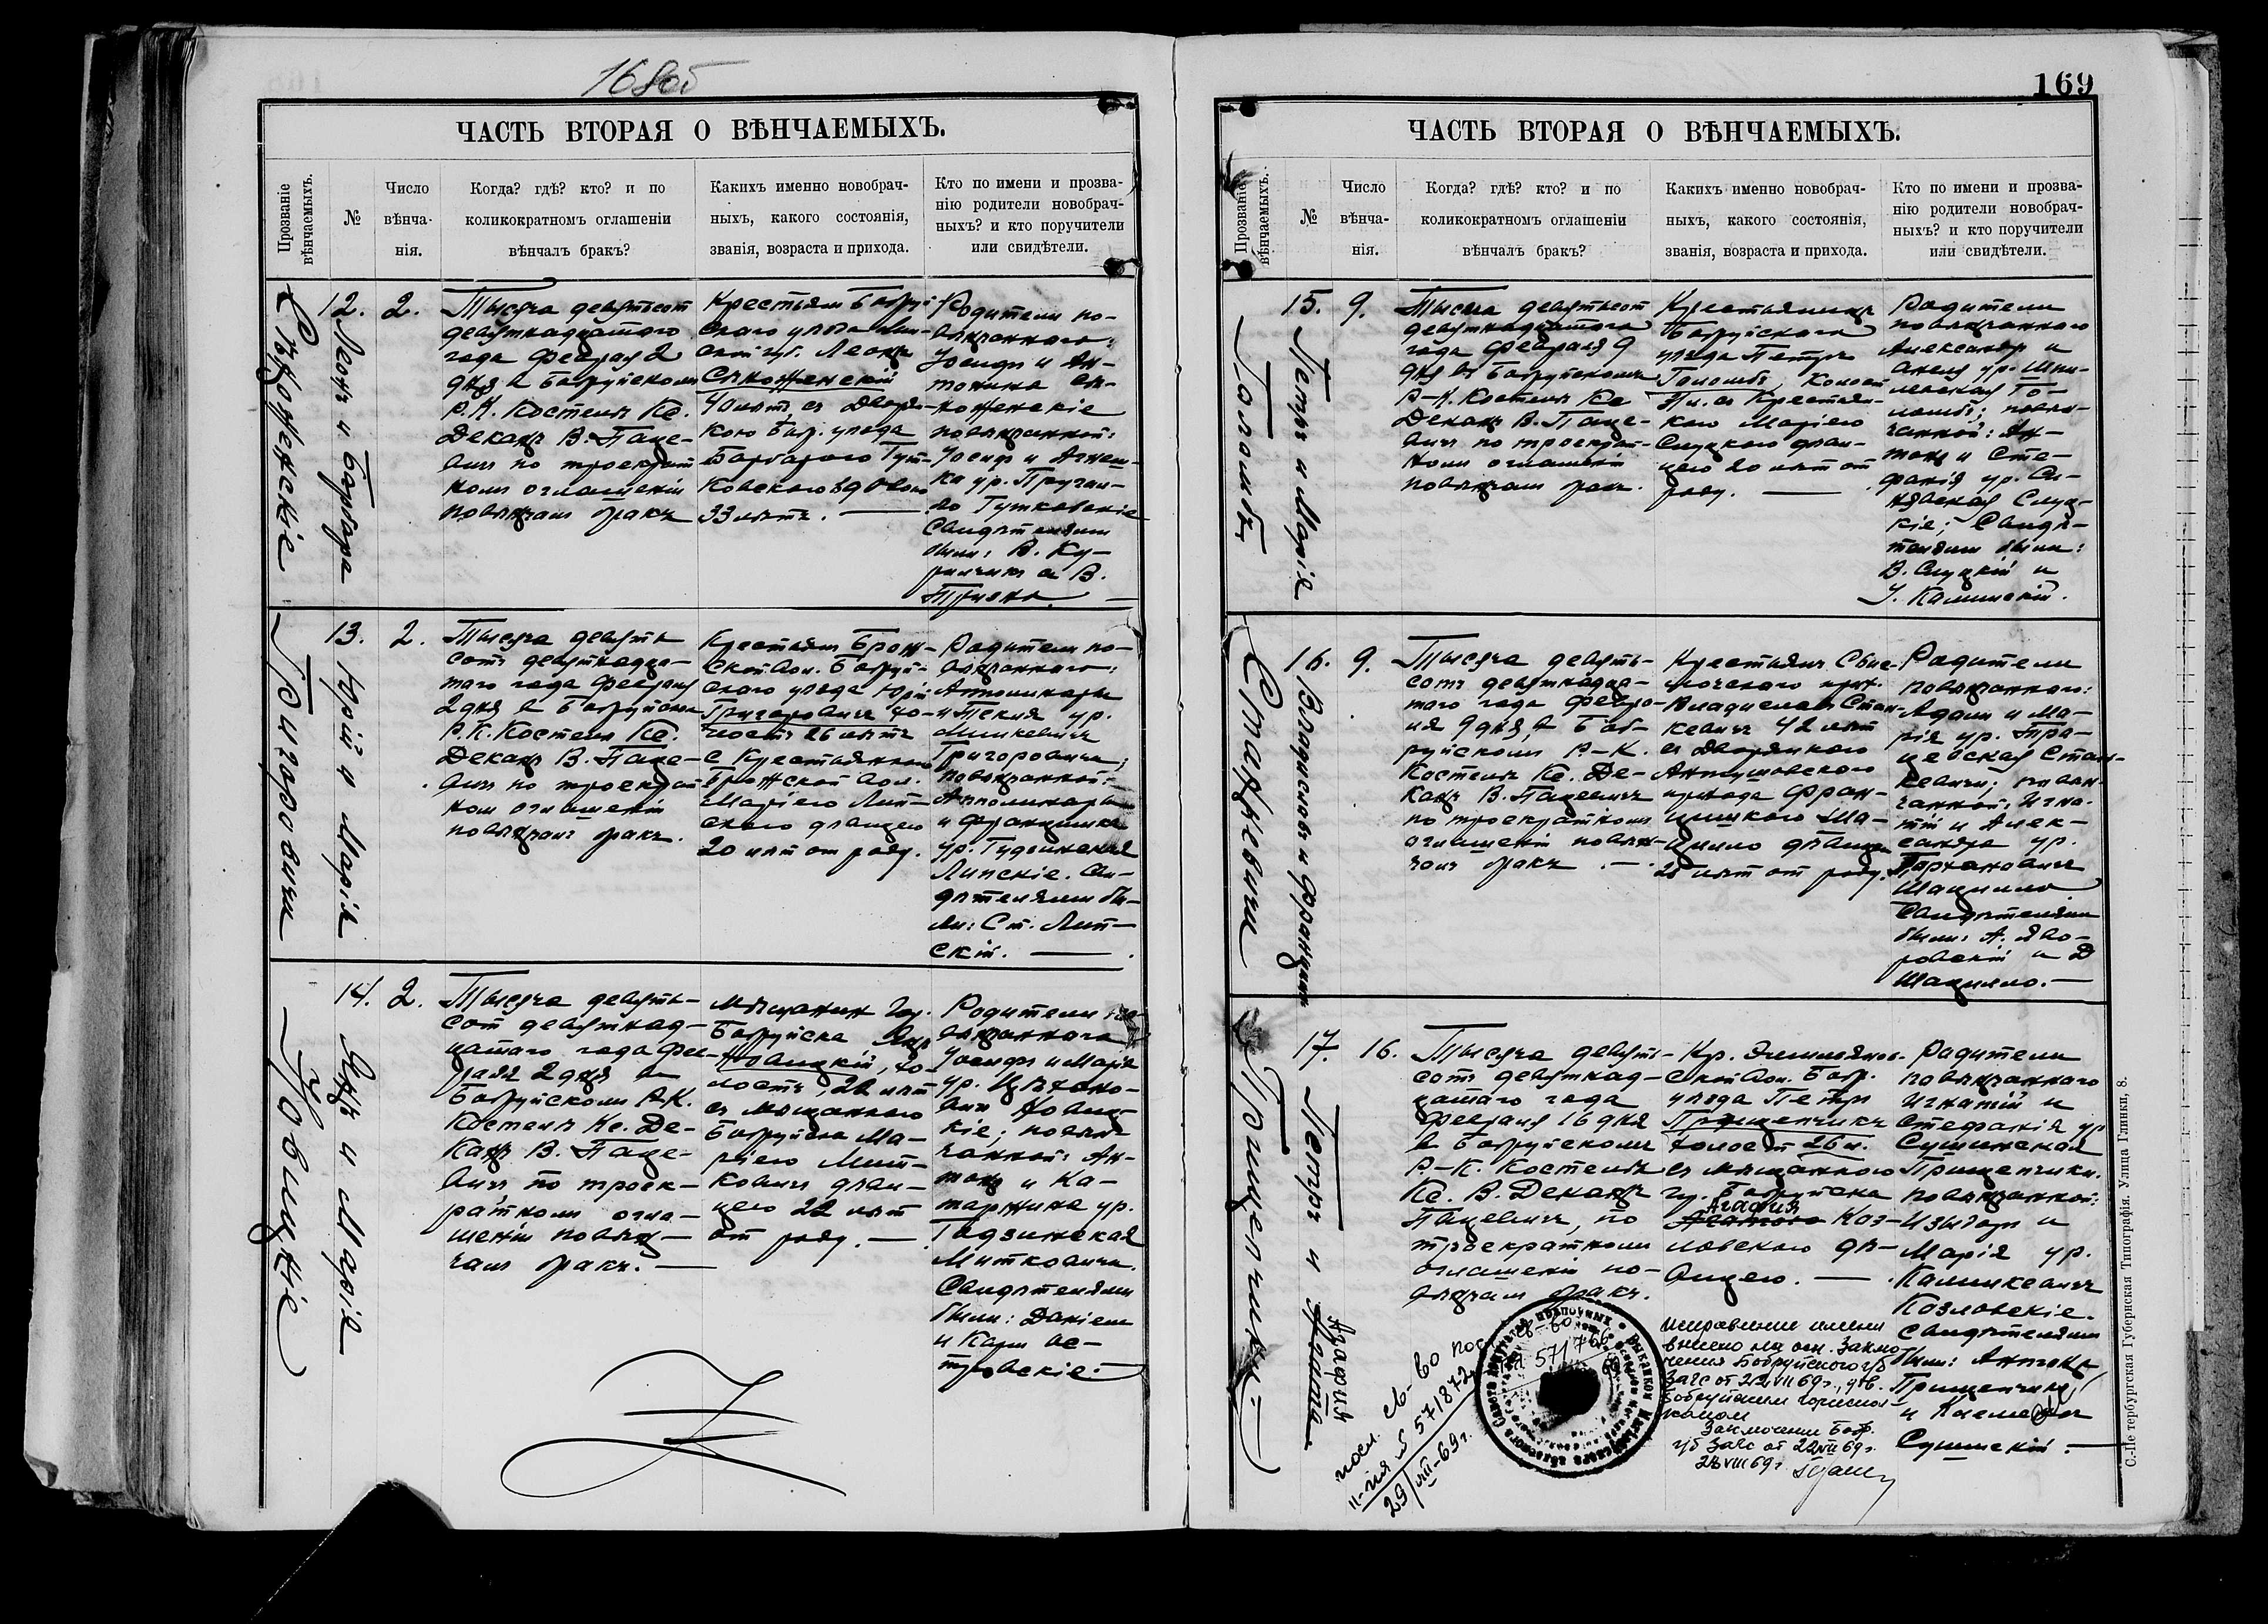 168об
ЧАСТЬ ВТОРАЯ О ВѢНЧАЕМЫХЪ.
Прозваніе вѣнчаемыхъ.
№
Число вѣнча-нія.
Когда? гдѣ? кто? и по
коликократномъ оглашеніи
вѣнчалъ бракъ?
Какихъ именно новобрач-
ныхъ, какого состоянія,
званія, возраста и прихода.
Кто по имени и прозва-
нію родители новобрач-
ныхъ? и кто поручители
или свидѣтели.
Сѣноженскіе
12. Леонъ и Барбара
2.
Тысяча девятьсот
девятнадцатого
года Февраля 2
дня в Бобруйском
Р. К. Костелѣ Кс.
Деканъ В. Паце-
вичъ по троекрат
ном оглашеніи
повѣнчалъ бракъ
Крестьян Бобруй-
скаго уѣзда Мин-
ской губ. Леонъ
Сѣноженскій
40 лѣтъ, съ Дворян-
кою Бобр. уѣзда
Барбарою Гут-
ковскою вдовою
33 лѣтъ.
Родители по-
вѣнчаннаго:
Іосифъ и Ан-
тонина Сѣ-
ноженскіе
повѣнчанной:
Іосиф и Агнеш-
ка ур.
Гутковскіе
Свидѣтелями
были: В. Ку-
и В.
Григоровичи
13. Юрій и Марія
2.
Тысяча девять
сотъ девятнадца-
таго года Февраля
2 дня в Бобруйском
Р. К. Костелѣ Кс.
Деканъ В. Паце-
вичъ по троекрат
ном оглашеніи
повѣнчалъ бракъ.
Крестьян Брож-
ской вол. Бобруй-
скаго уѣзда Юрій
Григоровичъ хо-
лостъ 26 лѣтъ
с Крестьянкою
Брожской вол.
Маріею Лип-
скою дѣвицею
20 лѣт от роду.
Родители по-
вѣнчаннаго:
Апполинары
и Текля ур.
Мицкевичъ
Григоровичи;
повѣнчанной:
Апполинары
и Францишка
ур.
Липскіе. Сви-
дѣтелями бы-
ли: Ст. Лип-
скій.
Новицкіе
14. Янъ и Марія
2.
Тысяча девять-
сот девятнад-
цатаго года Фев-
раля 2 дня в
Бобруйском Р.К.
Костелѣ Кс. Де-
канъ В. Паце-
вичъ по троек-
ратном огла-
шеніи повѣн-
чалъ бракъ.
Мѣщанин гор.
Бобруйска Янъ
Новицкій, хо-
лостъ, 22 лѣт
съ мѣщанкою
Бобруйска Ма-
ріею Мит-
ковичъ дѣви-
цею 22 лѣт
от роду.
Родители по-
вѣнчаннаго
Іосифъ и Марія
ур.
Новиц-
кіе; повѣн-
чанной: Ан-
тонъ и Ка-
таржина ур.
Годзинская
Митковичи.
Свидѣтелями
были: Даніель
и Карл Ос-
тровскіе.
169
ЧАСТЬ ВТОРАЯ О ВѢНЧАЕМЫХЪ.
Прозваніе вѣнчаемыхъ.
№
Число вѣнча-нія.
Когда? гдѣ? кто? и по
коликократномъ оглашеніи
вѣнчалъ бракъ?
Какихъ именно новобрач-
ныхъ, какого состоянія,
званія, возраста и прихода.
Кто по имени и прозва-
нію родители новобрач-
ныхъ? и кто поручители
или свидѣтели.
Голомбъ
15. Петръ и Марія
9.
Тысяча девятьсот
девятнадцатаго
года Февраля 9
дня въ Бобруйскомъ
Р-К. Костелѣ Кс
Деканъ В. Паце-
вичъ по троекрат-
ном оглашеніи
повѣнчалъ бракъ.
Крестьянинъ
Бобруйскаго
уѣзда Петръ
Голомбъ, холост
съ Крестьян-
кою Маріею
Слуцкою дѣви-
цею 20 лѣт от
роду.
Родители
повѣнчаннаго
Александр и
Анеля ур.
Го-
ломбы; повѣн-
чанной: Ан-
тонъ и Сте-
фанія ур.
Слуц-
кіе; Свидѣ-
телями были:
В. Слуцкій и
І. Калинскій.
Станкевичи
16. Владиславъ и Францишка
9.
Тысяча девять-
сотъ девятнадца-
таго года Февра-
ля 9 дня, в Боб-
руйском Р-К.
Костелѣ Кс. Де-
канъ В. Пацевичъ
по троекратном
оглашеніи повѣн-
чалъ бракъ.
Крестьянъ Свис-
лочскаго прих.
Владиславъ Стан-
кевичъ 42 лѣт
съ дворянкою
прихода Фран-
цишкою Ша-
цилло дѣвицею
28 лѣт от роду.
Родители
повѣнчаннаго:
Адам и Ма-
рія ур.
Стан-
кевичи; повѣн-
чанной: Игна-
тій и Алек-
сандра ур.
Шацилло
Свидѣтелями
были: А. Яво-
ровскій и Д
Шацилло.
Прищепчики
17. Петръ и Агафия
16.
Тысяча девять-
сотъ девятнад-
цатаго года
Февраля 16 дня
в Бобруйскомъ
Р-К. Костелѣ
Кс. В. Деканъ
Пацевичъ, по
троекратном
оглашеніи по-
вѣнчалъ бракъ.
ской вол. Бобр.
уѣзда Петръ
Прищепчикъ
холост 26 л.
съ мѣщанкою
гор. Бобруйска
Агафия
Коз-
ловскою дѣ-
вицею.
Родители
повѣнчаннаго
Игнатій и
Стефанія ур
Сушинская
Прищепчики.
повѣнчанной:
и
Марія ур.
Козловскіе.
Свидѣтелями
были: Антонъ
Прищепчикъ
и
Сушинскій.
исправление имени
внесено на осн. Заклю-
чения Бобруйского г/б
Загс от 22.VIII 69 г., утв.
Бобруйским горисполкомом
Заключение Боб.
г/б Загс от 22 VIII 69 г.
28 VIII 69 г.
571766
571872
29/VIII-69 г.
С.-Петербургская Губернская Типографія. Улица Глинки, 8.